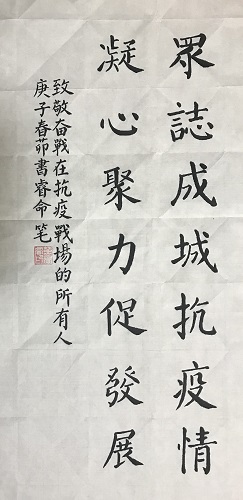 眾誌成城抗疫情
凝心聚力促發展
致敬奋戰在抗疫戰場的所有人
庚子春茆書睿命笔